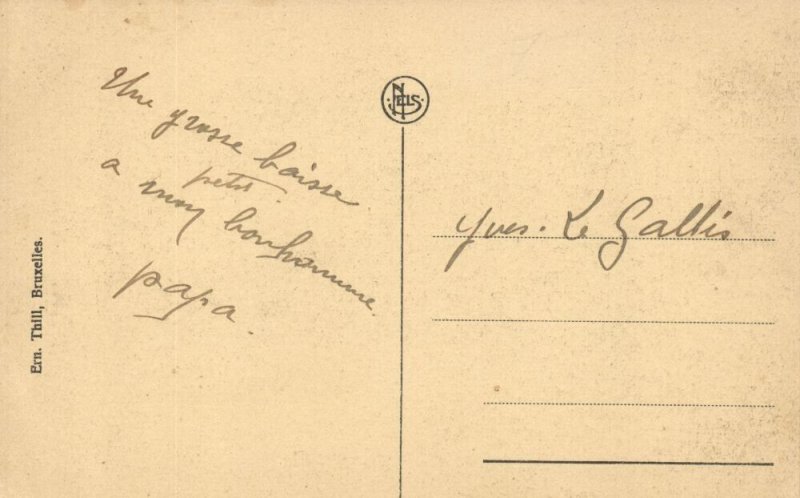 Une grosse baisse
petit
a mon bonhomme.
papa.
NELS
Yves. Le Gallis
Ern. Thill, Bruxelles.